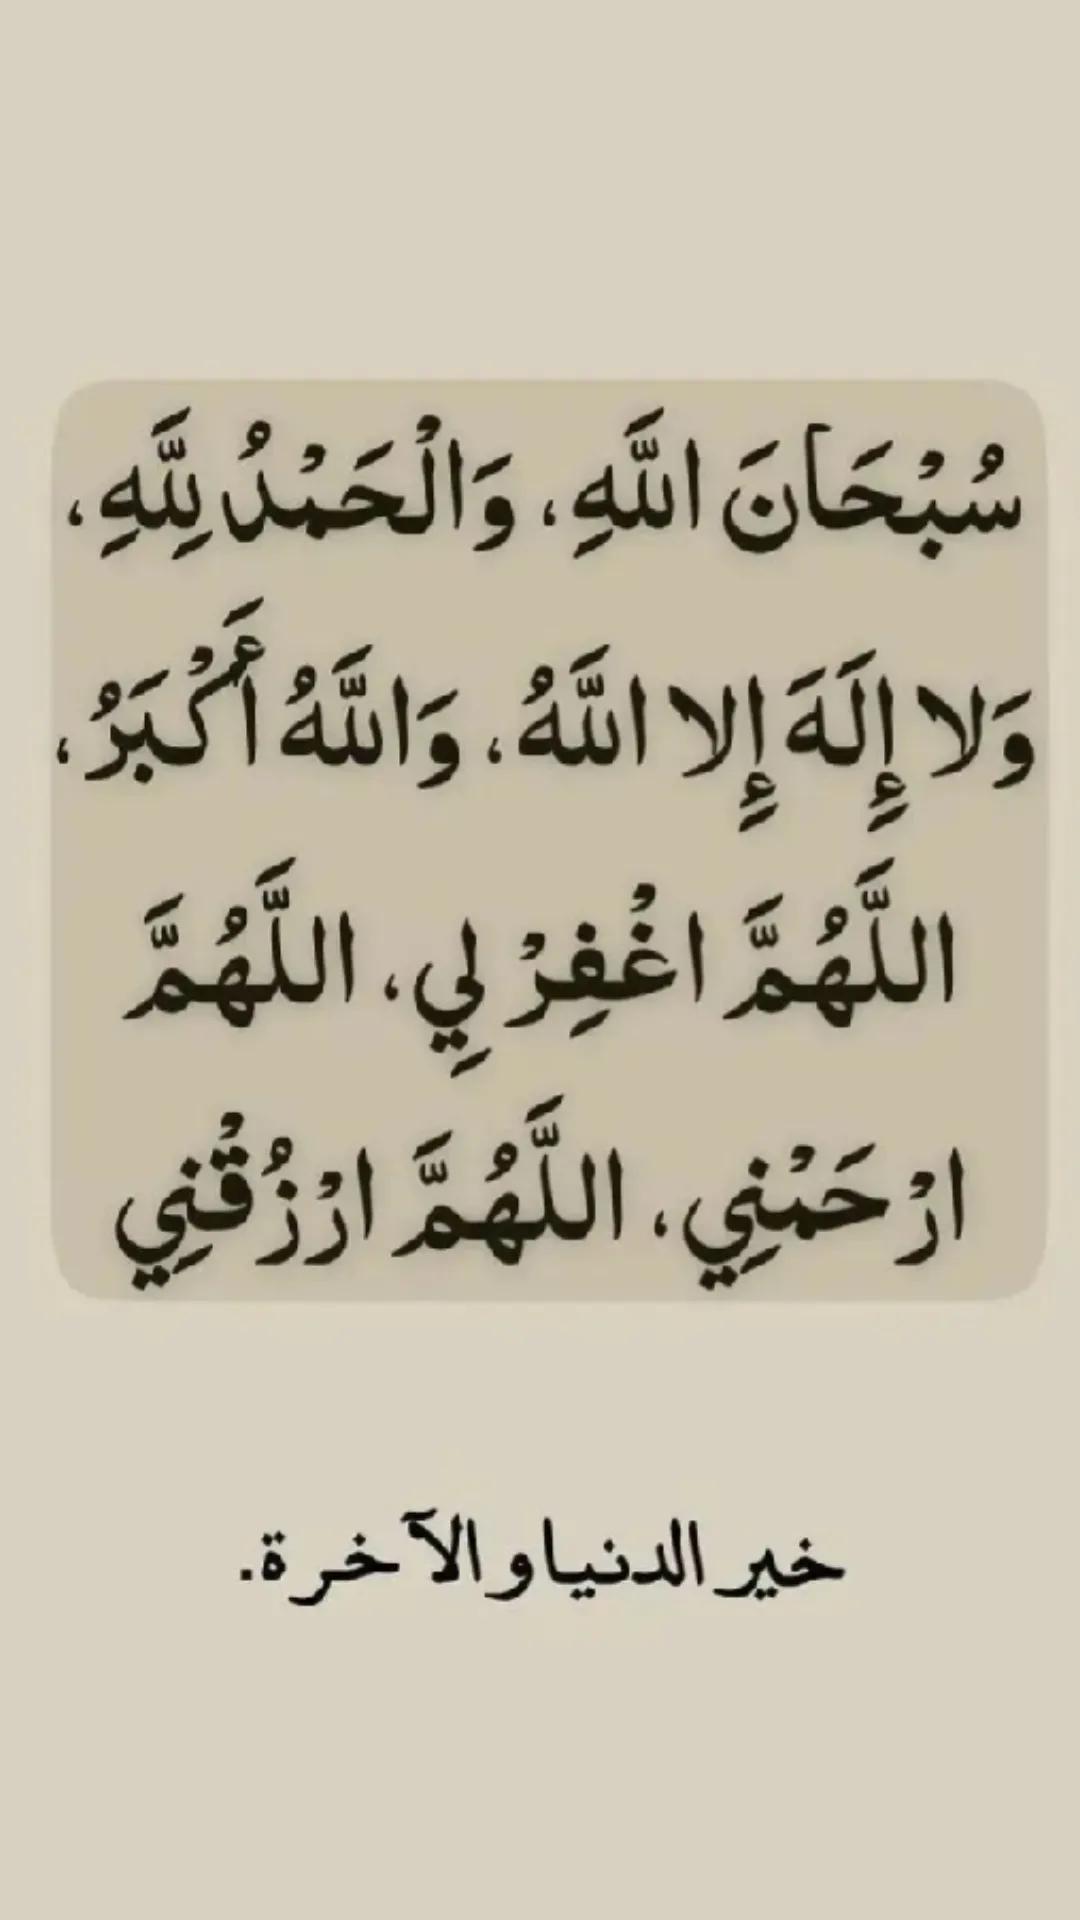 سُبْحَانَ اللَّهِ، وَالْحَمْدُ لِلَّهِ،
وَلا إِلَهَ إِلا اللَّهُ، وَاللَّهُ أَكْبَرُ،
اللَّهُمَّ اغْفِرْ لِي، اللَّهُمَّ
ارْحَمْنِي، اللَّهُمَّ ارْزُقْنِي
خير الدنيا و الآخرة.